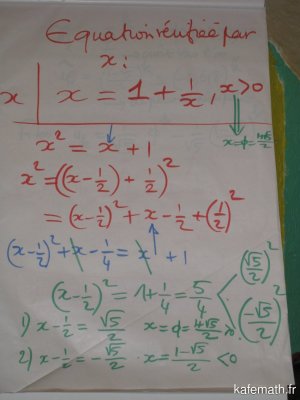 Equation vérifiée par
x :
x | x = 1 + 1/x , x>0
x² = x + 1
x = φ = 1+√5/2
x² = ((x - 1/2) + 1/2)²
= (x - 1/2)² + x - 1/2 + (1/2)²
(x - 1/2)² + x - 1/4 = x + 1
(x - 1/2)² = 1 + 1/4 = 5/4 < (√5/2)²
(-√5/2)²
1) x - 1/2 = √5/2 x = φ = 1+√5/2 >0
2) x - 1/2 = -√5/2 . x = 1-√5/2 <0
kafemath.fr